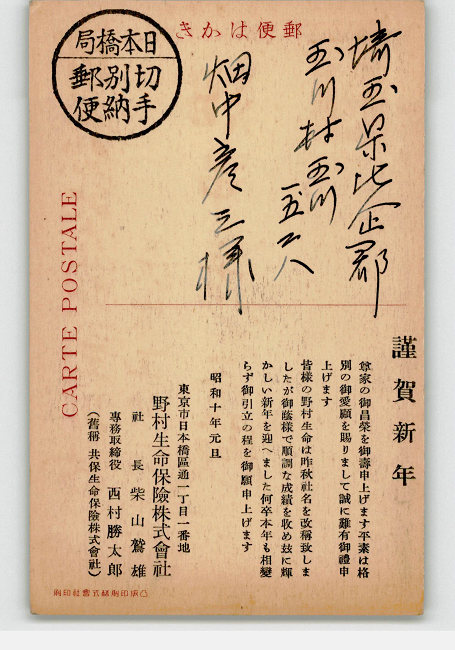 郵便はかき
日本橋局
切手別納郵便
CARTE POSTALE
埼玉県比企郡
玉川村玉川
一五二八
畑中彦三様
謹賀新年
尊家の御昌榮を御壽申上げます平素は格
別の御愛顧を賜りまして誠に難有御禮申
上げます
皆樣の野村生命は昨秋社名を改稱致しま
したが御蔭樣で順調な成績を收め玆に輝
かしい新年を迎へました何卒本年も相變
らず御引立の程を御願申上げます
昭和十年元旦
東京市日本橋區通一丁目一番地
野村生命保險株式會社
社長 柴山鷲雄
專務取締役 西村勝太郎
(舊稱 共保生命保險株式會社)